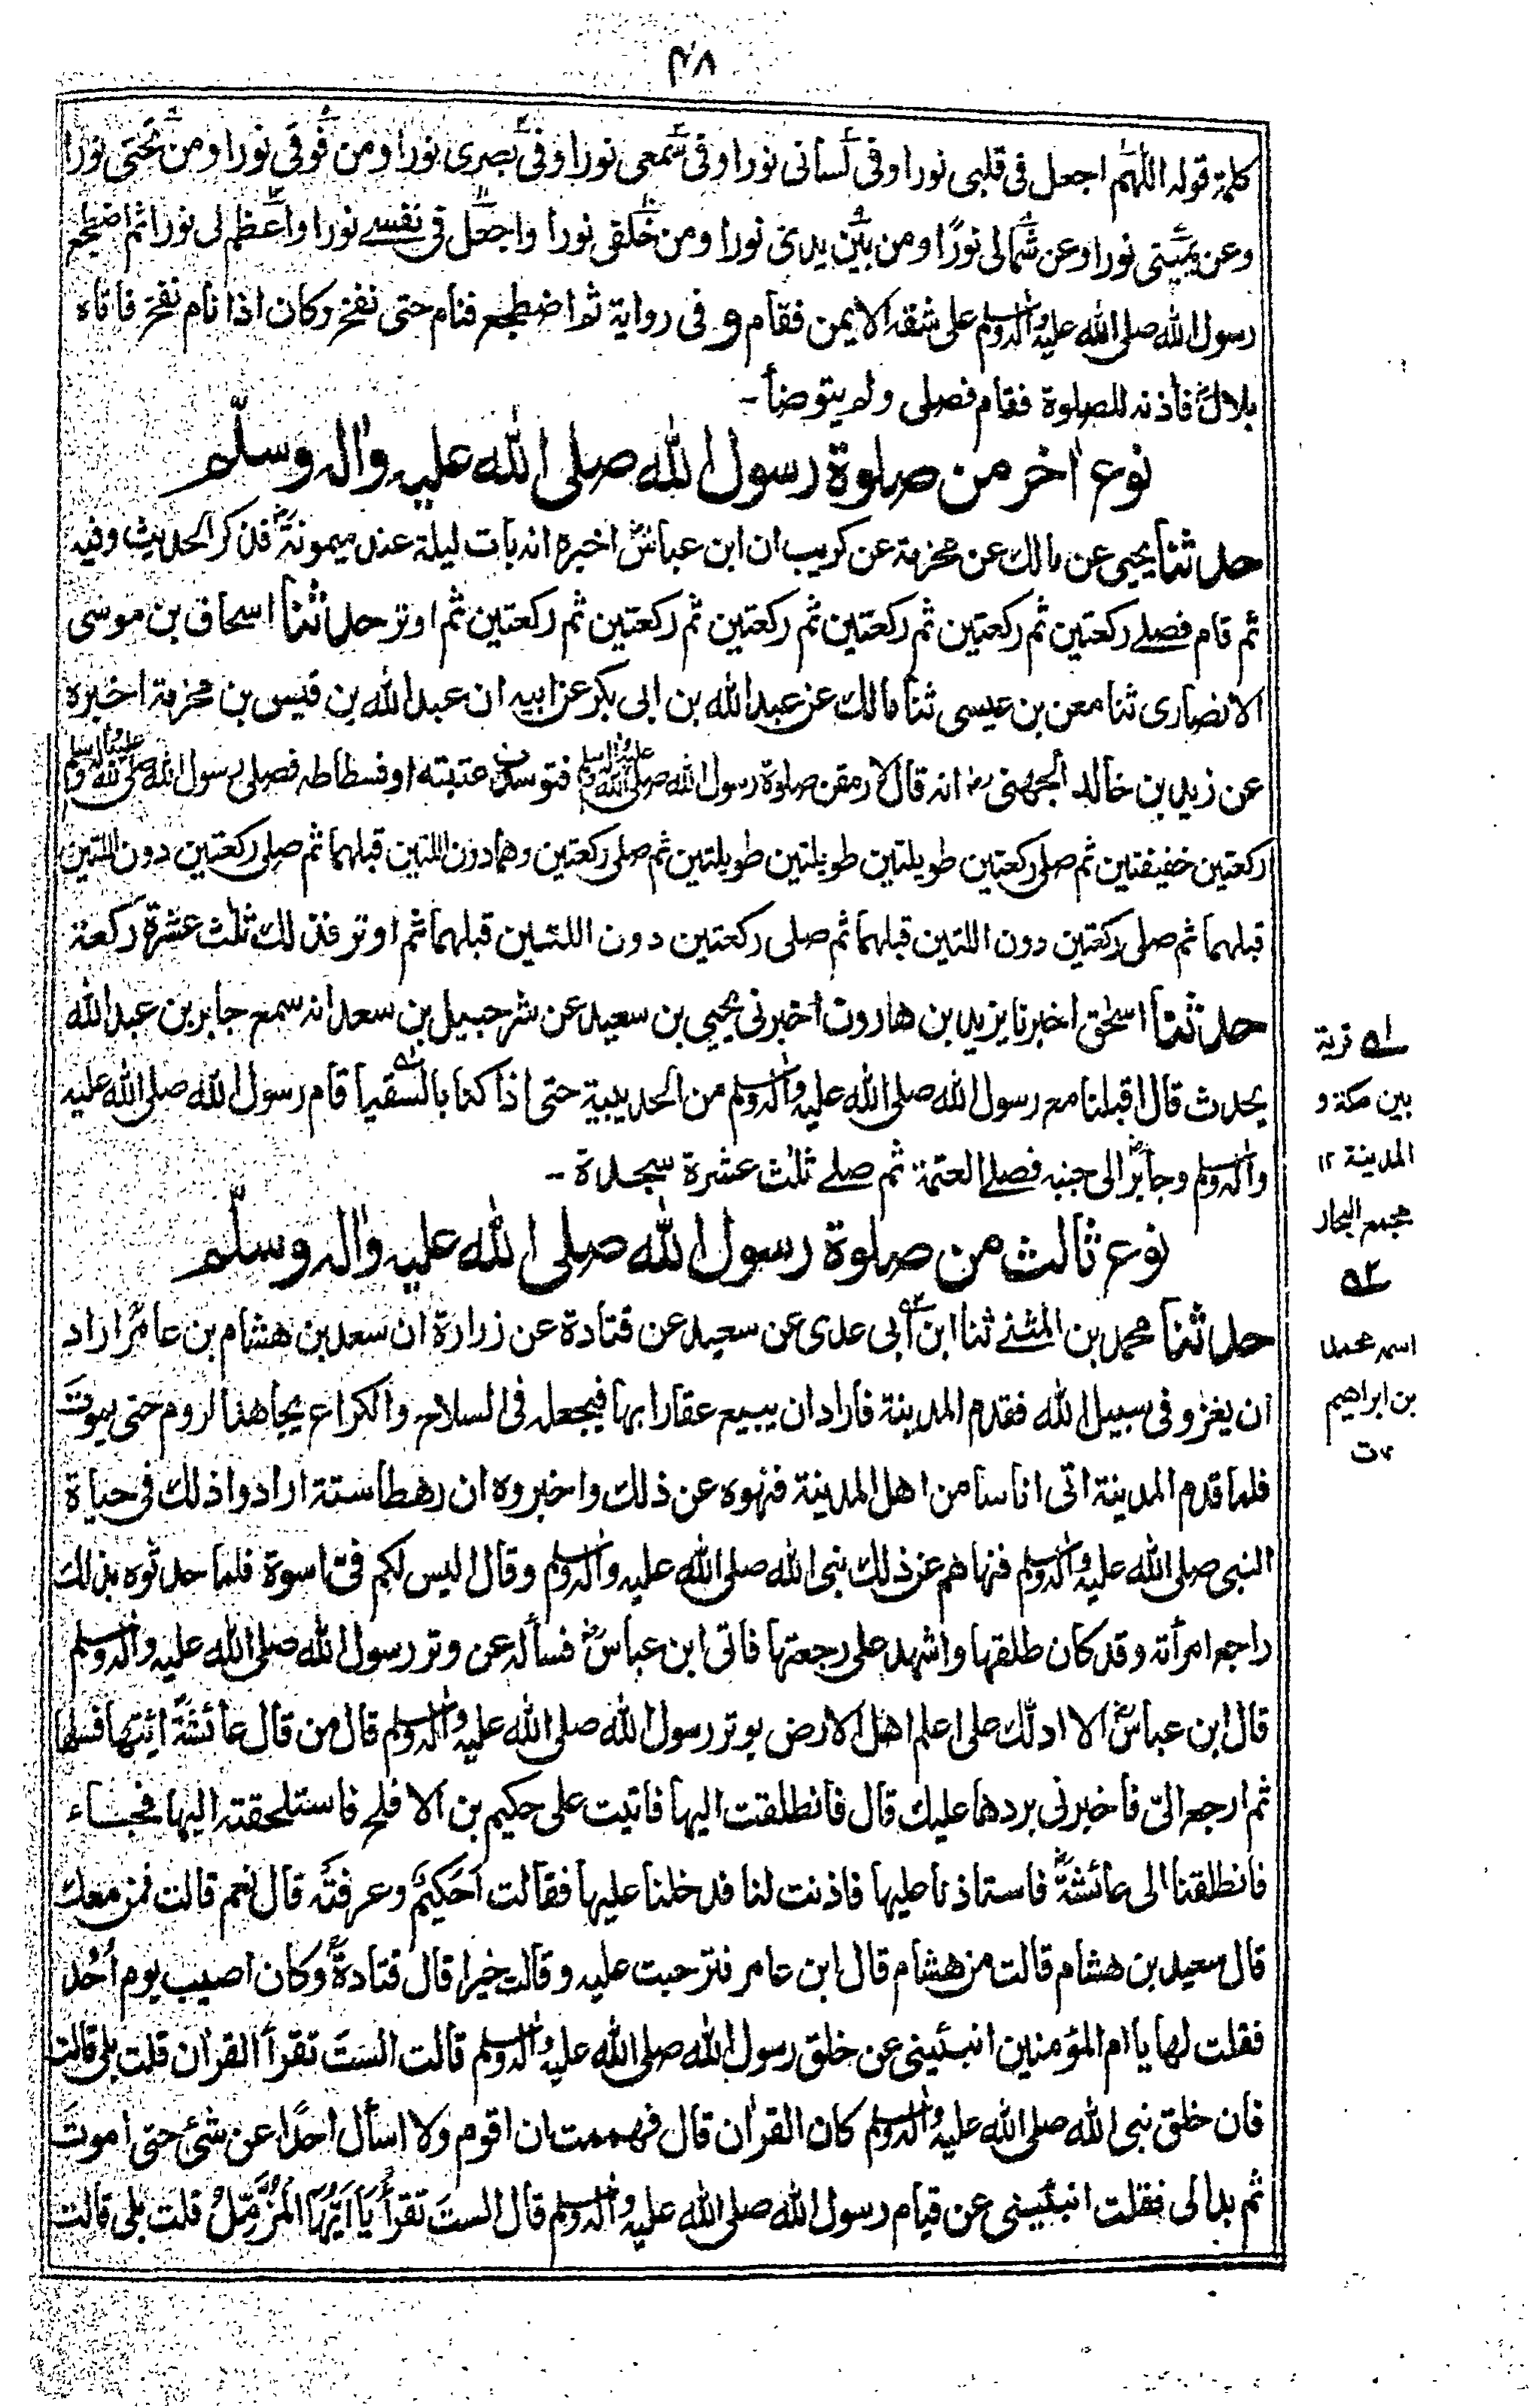 ٤٨
كلمة قوله اللهم اجعل في قلبي نورا وفي لساني نورا وفي سمعي نورا وفي بصري نورا ومن فوقي نورا ومن تحتي نورا
وعن يميني نورا وعن شمالي نورًا ومن بين يدي نورا ومن خلفي نورا واجعل في نفسي نورا واعظم لي نورا ثم اضطجع
رسول الله صلى الله عليه واله وسلم على شقه الايمن فقام و في رواية ثم اضطجع فنام حتى نفخ وكان اذا نام نفخ فاتاه
بلالؓ فأذنه للصلوة فقام فصلى ولم يتوضأ -
نوع اٰخر من صلوة رسول الله صلى الله عليه واٰله وسلّم
حدثنا يحيى عن مالك عن مخرمة عن كريب ان ابن عباسؓ اخبره انه بات ليلة عند ميمونةؓ فذكر الحديث وفيه
ثم قام فصلے ركعتين ثم ركعتين ثم ركعتين ثم ركعتين ثم ركعتين ثم ركعتين ثم اوتر حدثنا اسحاق بن موسى
الانصارى ثنا معن بن عيسى ثنا مالك عن عبد الله بن ابى بكر عن ابيه ان عبد الله بن قيس بن مخرمة اخبره
عن زيد بن خالد الجهنىؓ انه قال لارمقن صلوة رسول الله صلى الله عليه واله وسلم فتوسدت عتبته او فسطاطه فصلى رسول الله صلى الله عليه واله وسلم
ركعتين خفيفتين ثم صلى ركعتين طويلتين طويلتين طويلتين ثم صلى ركعتين وهما دون اللتين قبلهما ثم صلى ركعتين دون اللتين
قبلهما ثم صلى ركعتين دون اللتين قبلهما ثم صلى ركعتين دون اللتين قبلهما ثم اوتر فذلك ثلٰث عشرة ركعة
حدثنا اسحٰق اخبرنا يزيد بن هارون اخبرنى يحيى بن سعيد عن شرحبيل بن سعد انه سمع جابر بن عبد الله
يحدث قال اقبلنا مع رسول الله صلى الله عليه واٰله وسلم من الحديبية حتى اذا كنا بالسقيا قام رسول الله صلى الله عليه
واٰله وسلم وجابرؓ الى جنبه فصلے العتمة ثم صلے ثلٰث عشرة سجدة -
نوع ثالث من صلوة رسول الله صلى الله عليه واٰله وسلّم
حدثنا محمد بن المثنے ثنا ابن ابى عدى عن سعيد عن قتادة عن زرارة ان سعد بن هشام بن عامرؓ اراد
ان يغزو فى سبيل الله فقدم المدينة فاراد ان يبيع عقارا بها فيجعله فى السلاح والكراع يجاهد الروم حتى يموت
فلما قدم المدينة اتى اناسا من اهل المدينة فنهوه عن ذلك واخبروه ان رهطا ستة ارادوا ذلك فى حياة
النبى صلى الله عليه واٰله وسلم فنهاهم عن ذلك نبى الله صلى الله عليه واٰله وسلم وقال اليس لكم فىّ اسوة فلما حدثوه بذلك
راجع امرأته وقد كان طلقها واشهد على رجعتها فاتى ابن عباسؓ فسأله عن وتر رسول الله صلى الله عليه واٰله وسلم
قال ابن عباسؓ الا ادلك على اعلم اهل الارض بوتر رسول الله صلى الله عليه واٰله وسلم قال من قال عائشةؓ ائتها فسلها
ثم ارجع الىّ فاخبرنى بردها عليك قال فانطلقت اليها فاتيت على حكيم بن الافلح فاستلحقته اليها فجاء
فانطلقنا الى عائشةؓ فاستاذنا عليها فاذنت لنا فدخلنا عليها فقالت احكيمؓ وعرفتَه قال نعم قالت فمن معك
قال سعيد بن هشام قالت من هشام قال ابن عامر فترحبت عليه وقالت خيرا قال قتادةؒ وكان اصيب يوم اُحُد
فقلت لها يا ام المؤمنين انبئينى عن خلق رسول الله صلى الله عليه واٰله وسلم قالت الستَ تقرأ القراٰن قلت بلى قالت
فان خلق نبى الله صلى الله عليه واٰله وسلم كان القراٰن قال فهممت ان اقوم ولا اسأل احدًا عن شئ حتى اموتَ
ثم بدا لى فقلت انبئينى عن قيام رسول الله صلى الله عليه واٰله وسلم قال الستَ تقرأ يَا اَيُّهَا الْمُزَّمِّلُ قلت بلى قالت
۵۱ قرية
بين مكة و
المدينة ١٢
مجمع البحار
۵۲
اسمه محمد
بن ابراهيم
ت